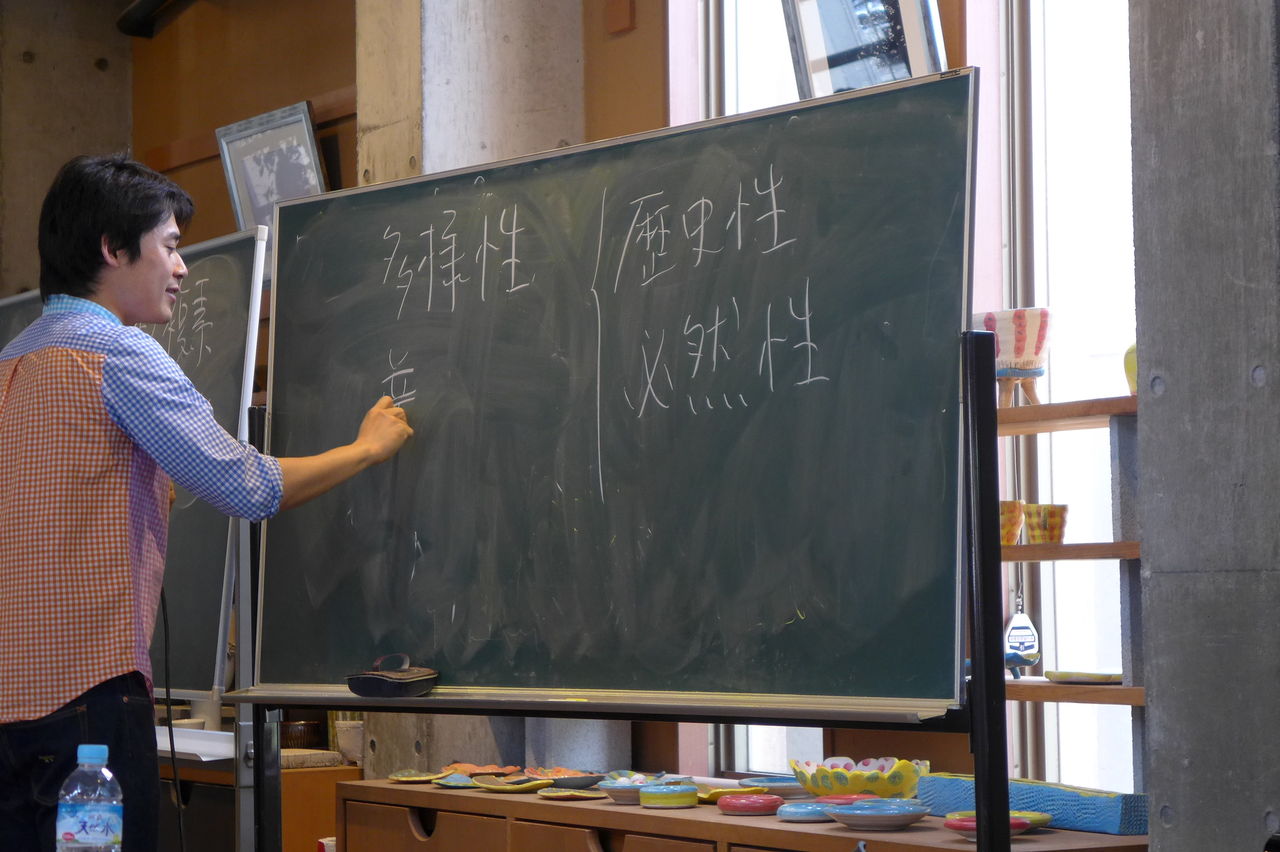 多様性
歴史性
必然性
天然水